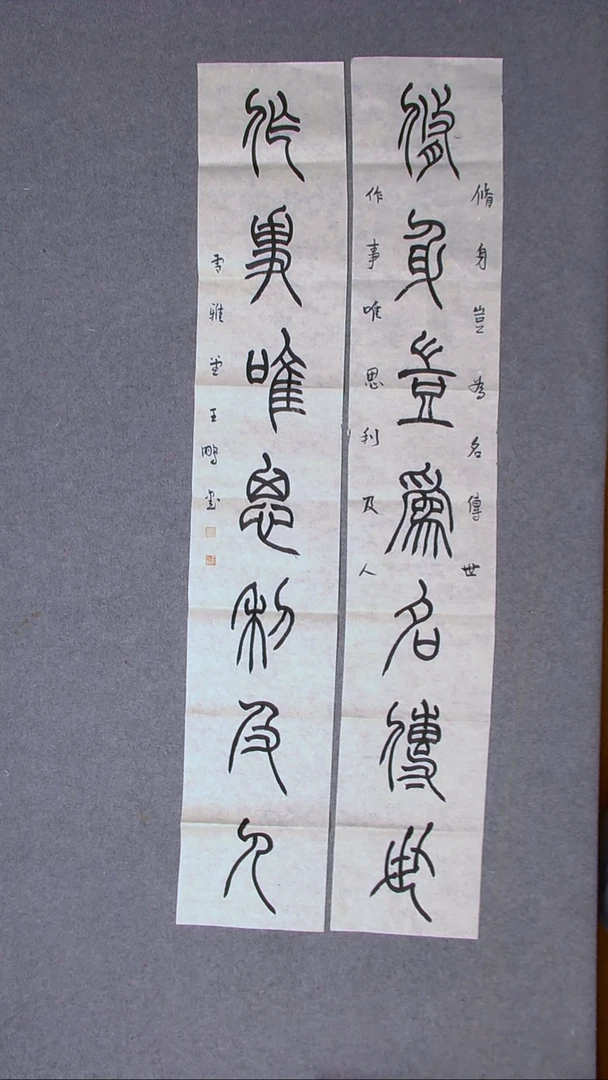 脩身豈為名傳世
脩身豈為名傳世
作事唯思利及人
作事唯思利及人
雪雅堂王鵬書